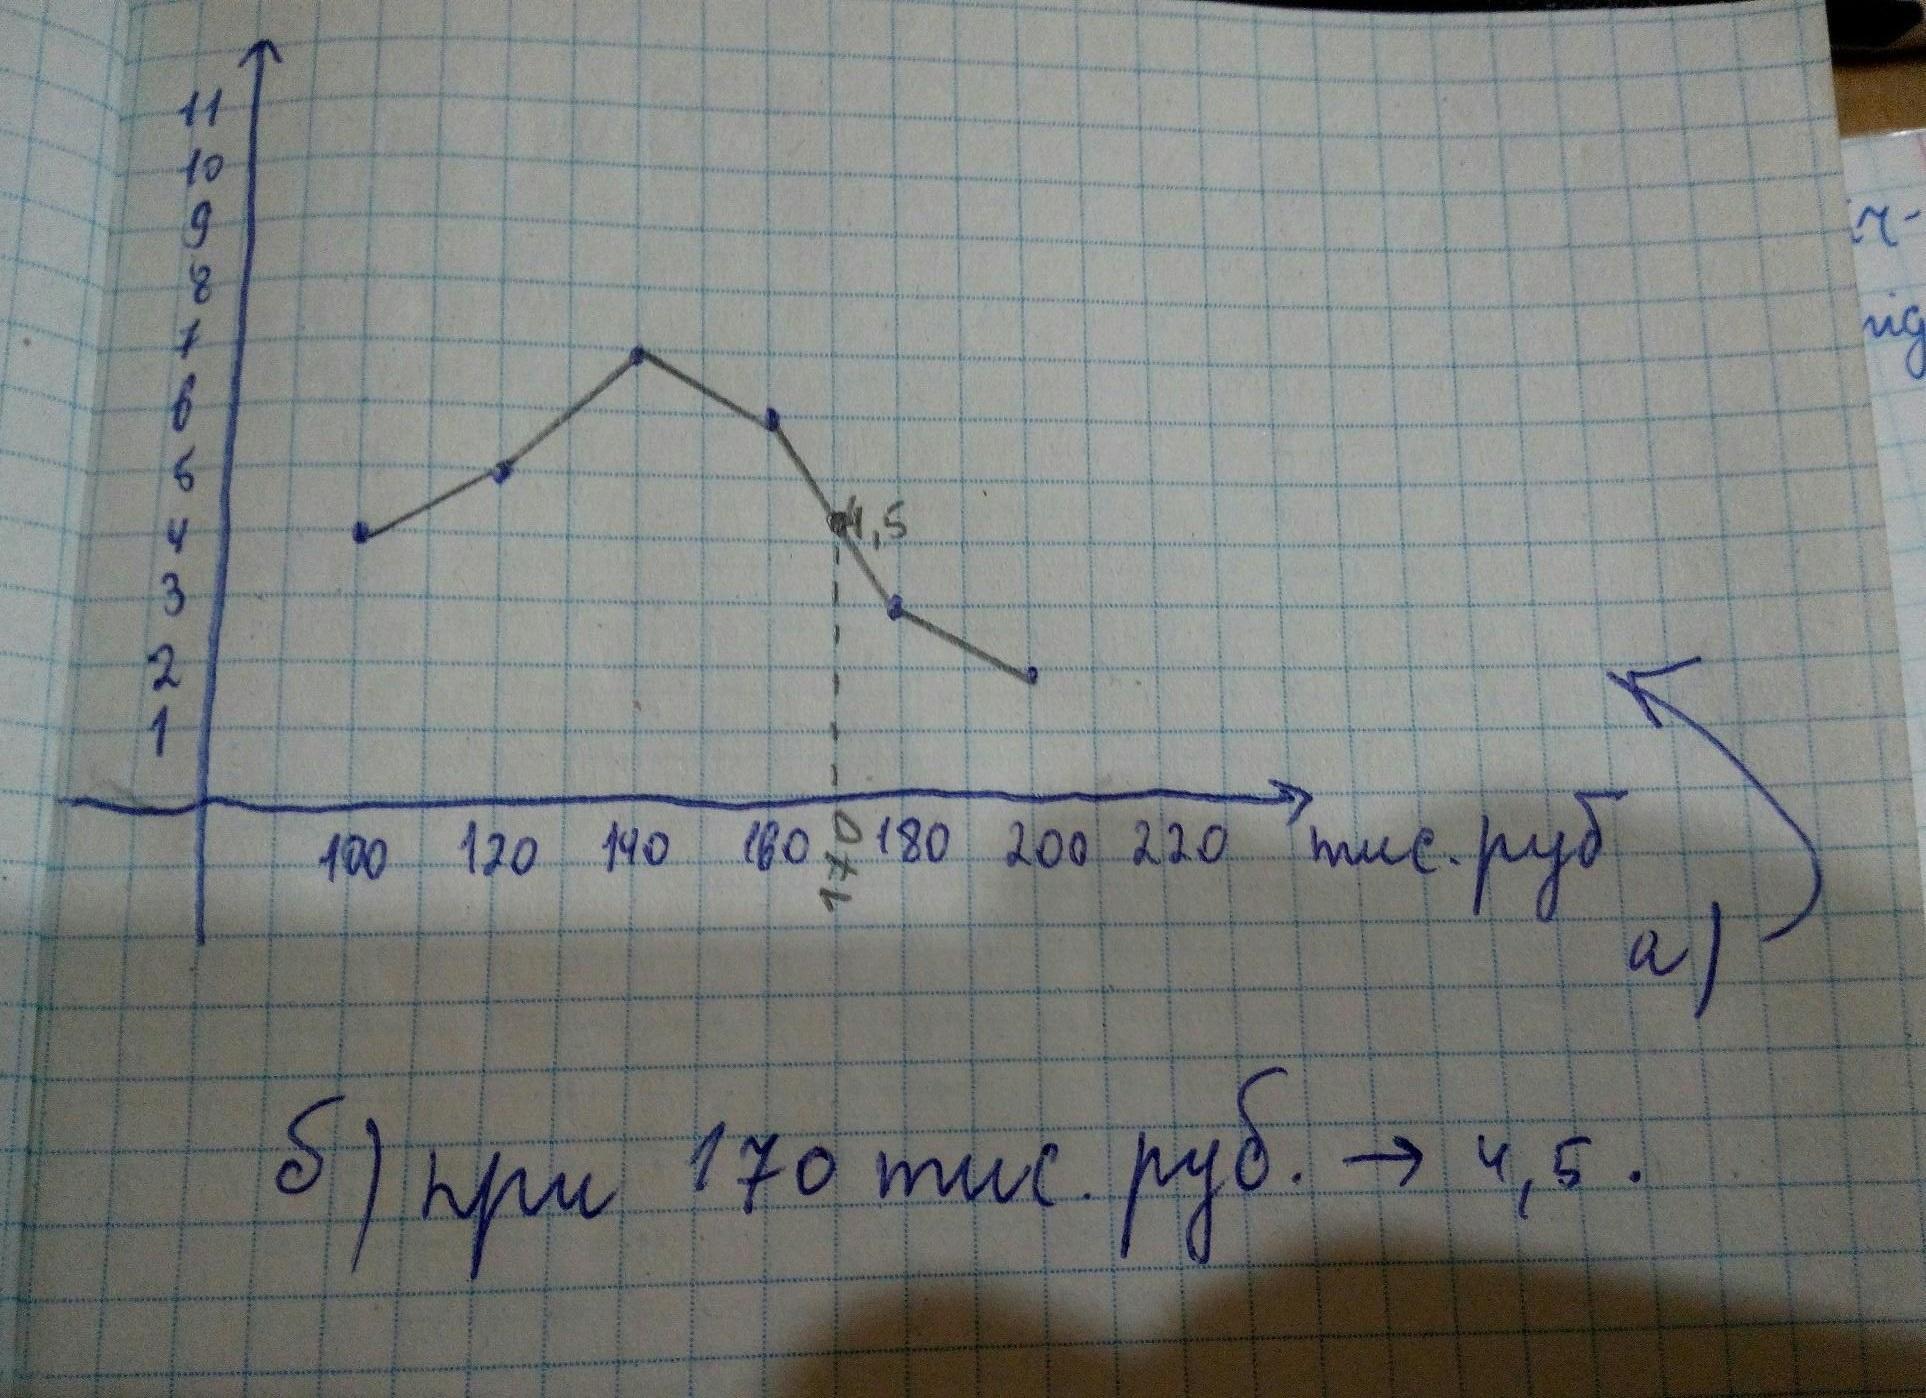 11
10
9
8
7
6
5
4
3
2
1
4,5
100 120 140 160 170 180 200 220 тис. руб
а)
б) при 170 тис. руб. → 4,5.